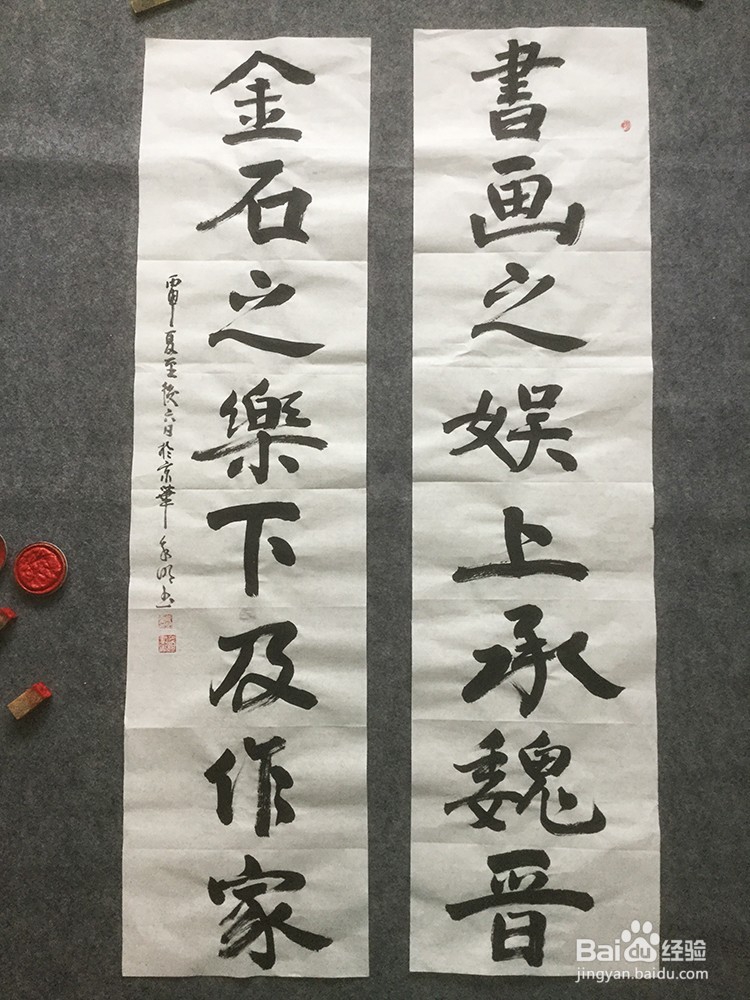 書画之娱上承魏晋
金石之樂下及作家
丙申夏至後六日於京華
Baidu经验
jingyan.baidu.com